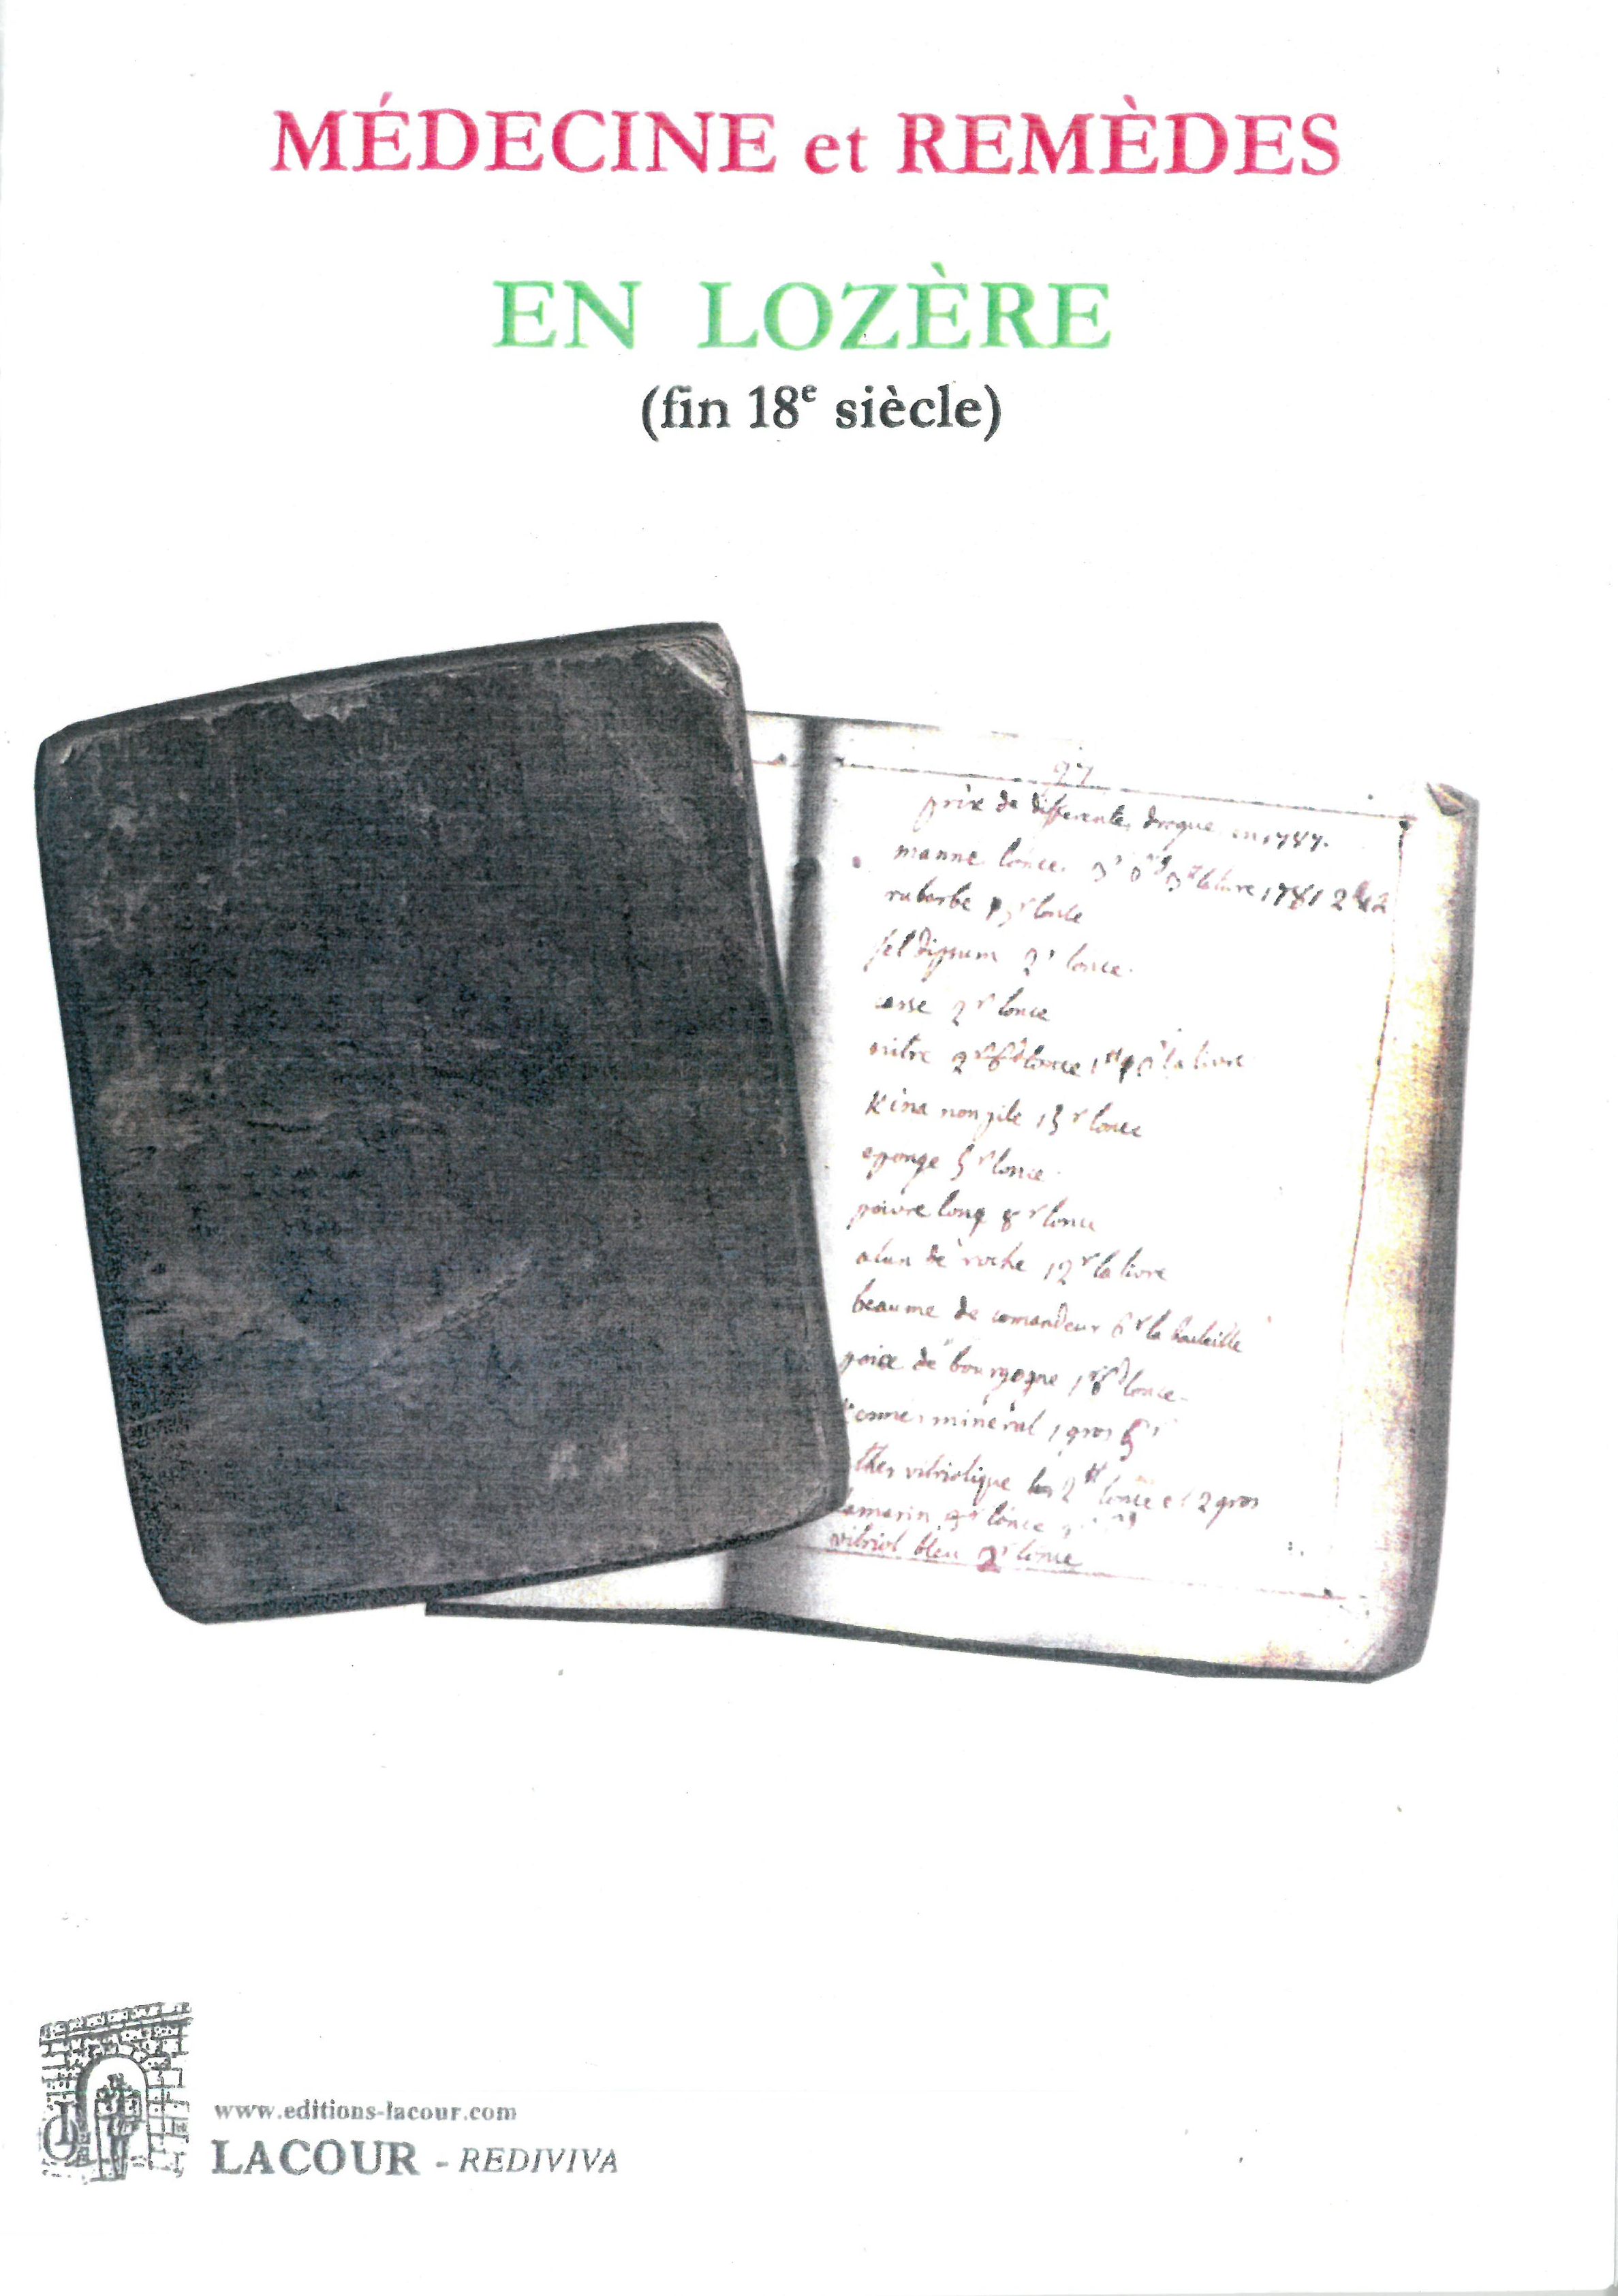 MÉDECINE et REMÈDES
EN LOZÈRE
(fin 18e siècle)
97
prix de differentes drogues en 1787.
manne lonce 3s la livre 1781 2
rubarbe lonce
sel dipsum 2s lonce.
casse 2s lonce
nitre 2s 6d lonce la livre
Kina non pile 15s lonce
eponge 5s lonce.
poivre long 8s lonce
alun de roche 12s la livre
beaume de comandeur 6s la bouteille
poix de bourgogne 1s 6d lonce.
Kermes mineral 1 gros 5s
ther vitriolique lonce 2 gros
tamarin 3s lonce
vitriol bleu 2s lonce
www.editions-lacour.com
LACOUR - REDIVIVA